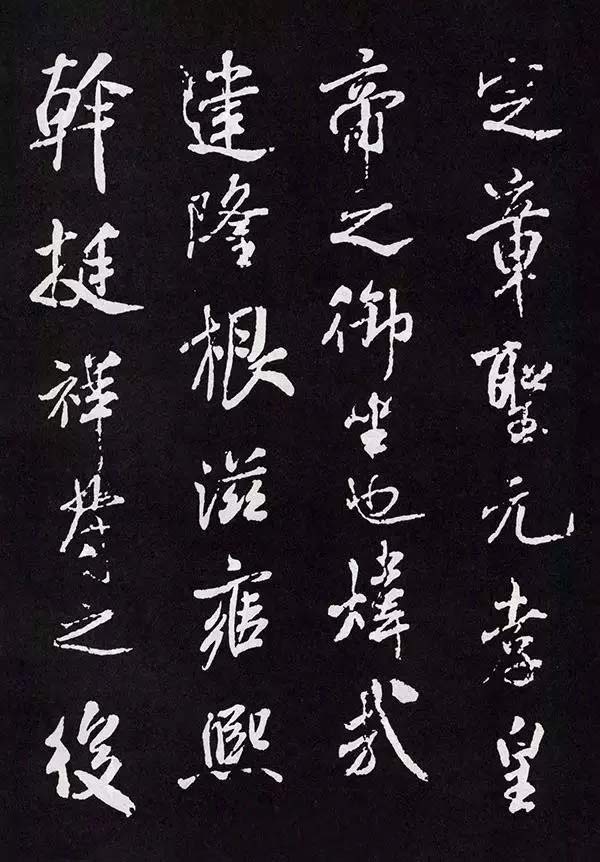 定章聖元孝皇
帝之御坐也煒哉
建隆根滋雍熙
幹挺祥符之後